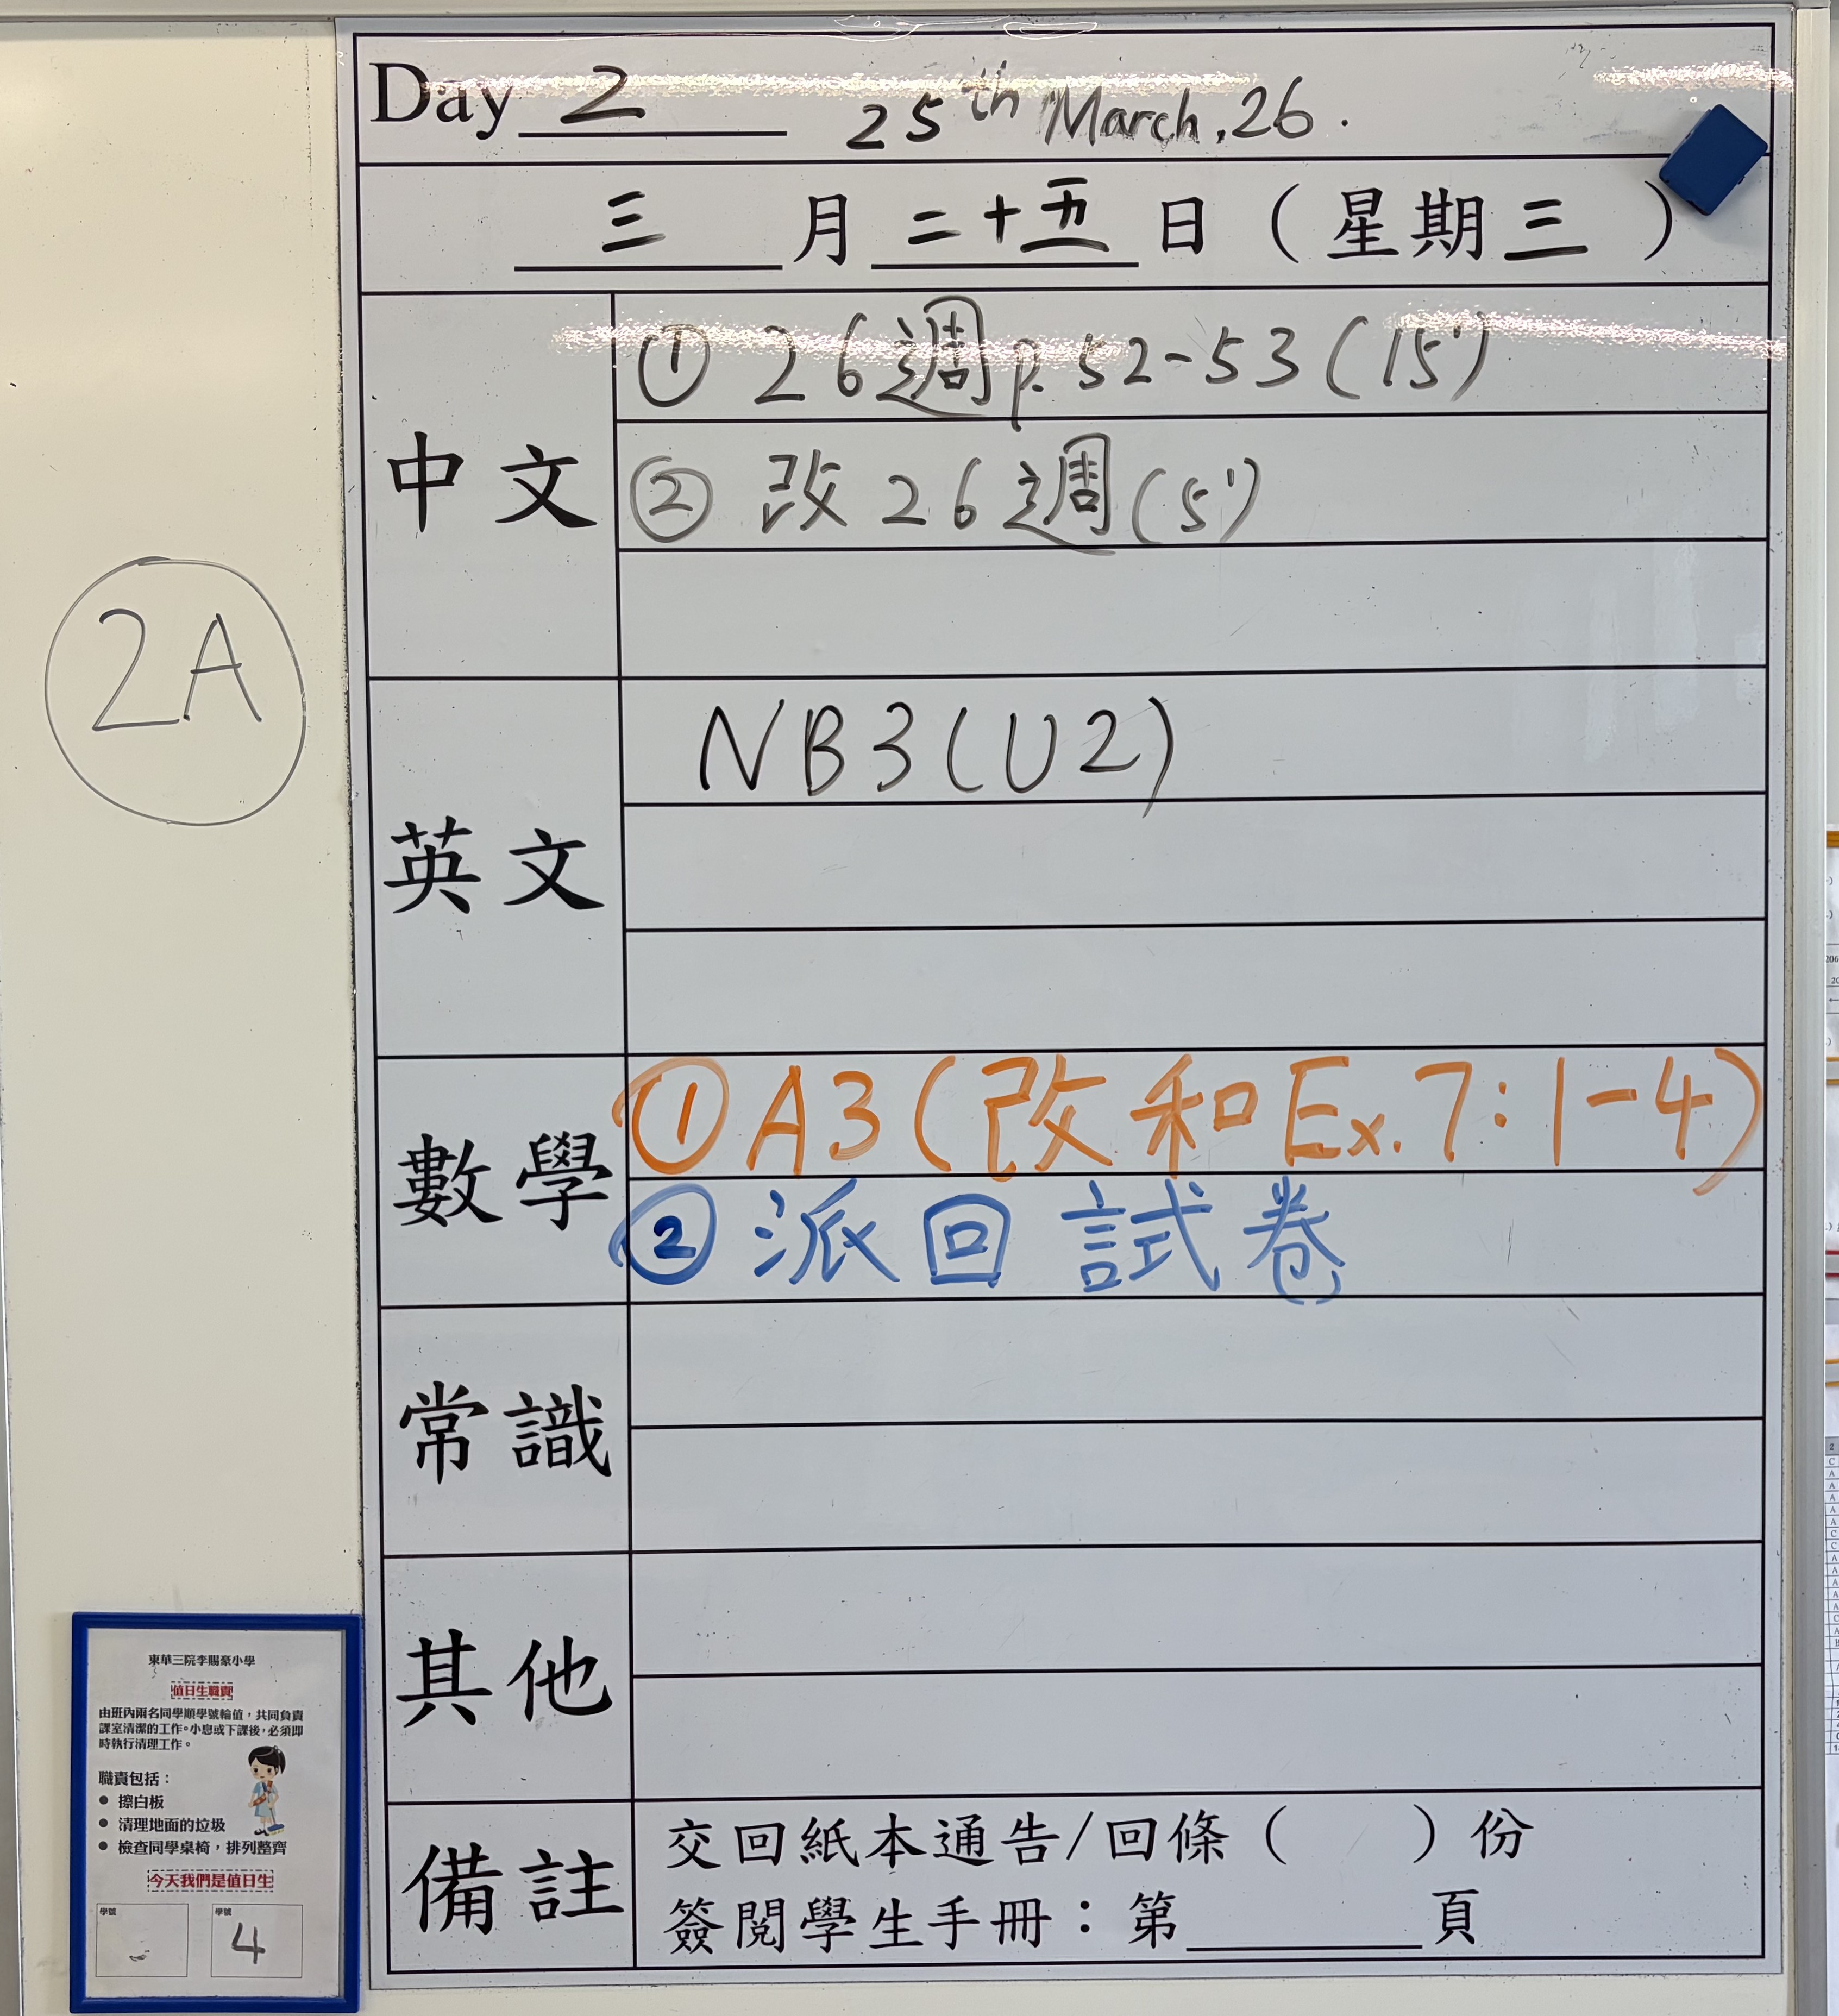 Day 2 25th March, 26.
三 月 二十五 日（星期三）
中文
① 26週 p.52-53 (15')
② 改 26週 (5')
英文
NB3 (U2)
數學
① A3 (改和 Ex.7: 1-4)
② 派回試卷
常識
其他
備註
交回紙本通告/回條（ ）份
簽閱學生手冊：第______頁
2A
東華三院李賜豪小學
值日生職責
由班內兩名同學順學號輪值，共同負責
課室清潔的工作。小息或下課後，必須即
時執行清理工作。
職責包括：
● 擦白板
● 清理地面的垃圾
● 檢查同學桌椅，排列整齊
今天我們是值日生
學號 學號
4